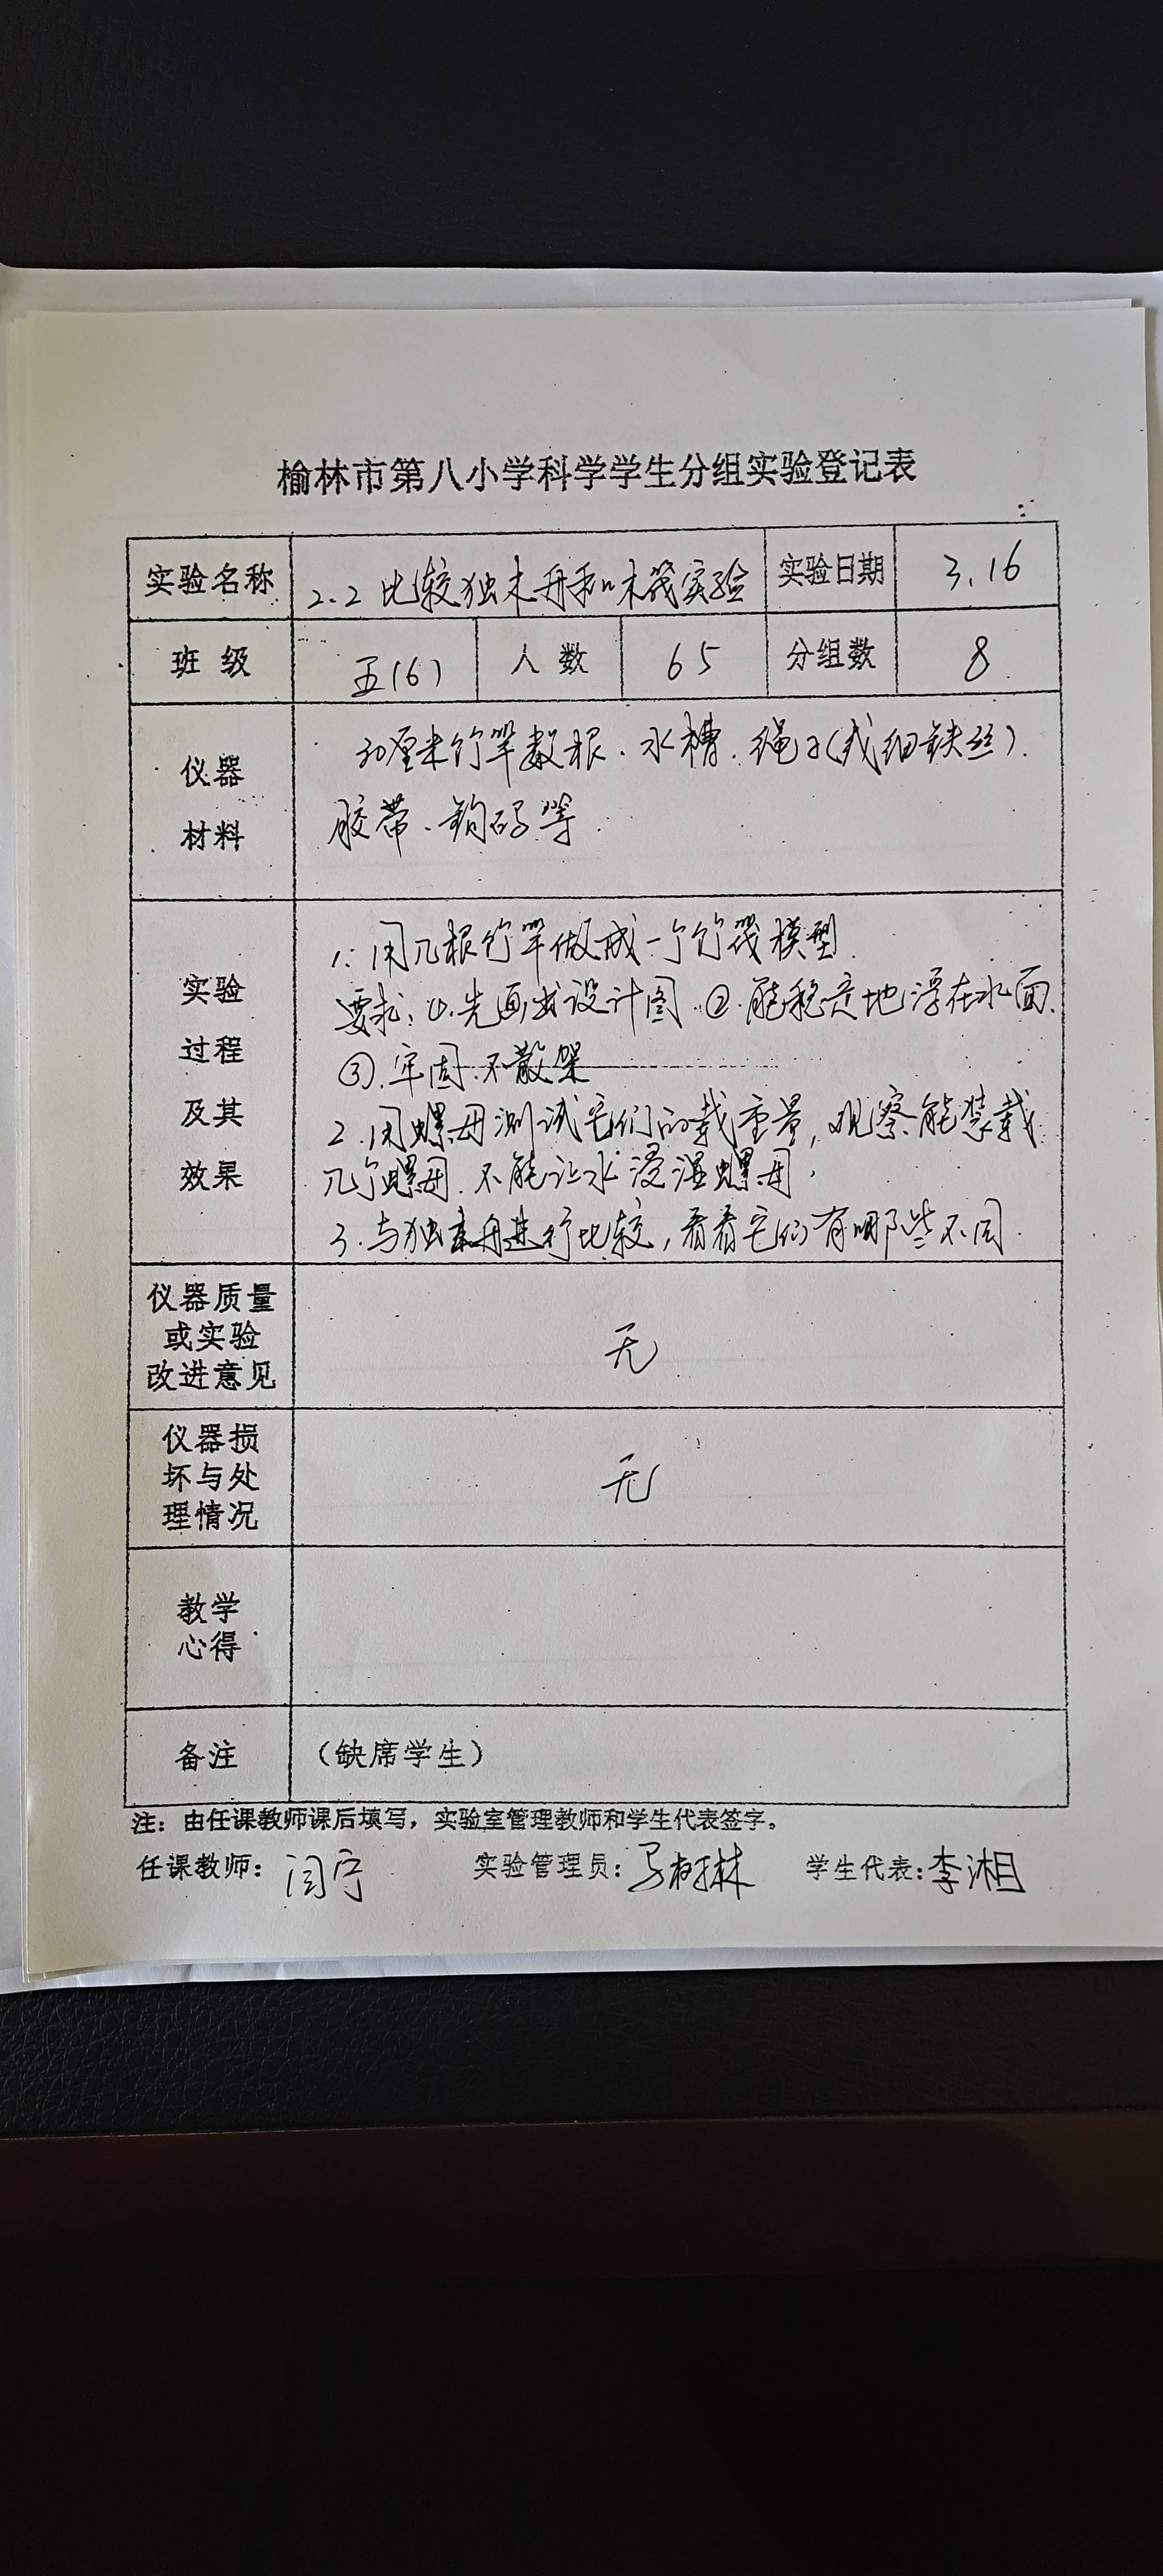 榆林市第八小学科学学生分组实验登记表
实验名称 2.2 比较独木舟和木筏实验 实验日期 3.16
班级 五(6) 人数 65 分组数 8
仪器材料
30厘米竹竿数根、水槽、绳子(或细铁丝)、
胶带、钩码等
实验过程及其效果
1. 用几根竹竿做成一个竹筏模型.
要求: ①.先画出设计图 ②.能稳定地浮在水面.
③.牢固.不散架
2.用螺母测试它们的载重量,观察能装载
几个螺母.不能让水浸湿螺母.
3.与独木舟进行比较,看看它们有哪些不同.
仪器质量或实验改进意见 无
仪器损坏与处理情况 无
教学心得
备注 (缺席学生)
注：由任课教师课后填写，实验室管理教师和学生代表签字。
任课教师：闫宁 实验管理员：马树林 学生代表：李湘